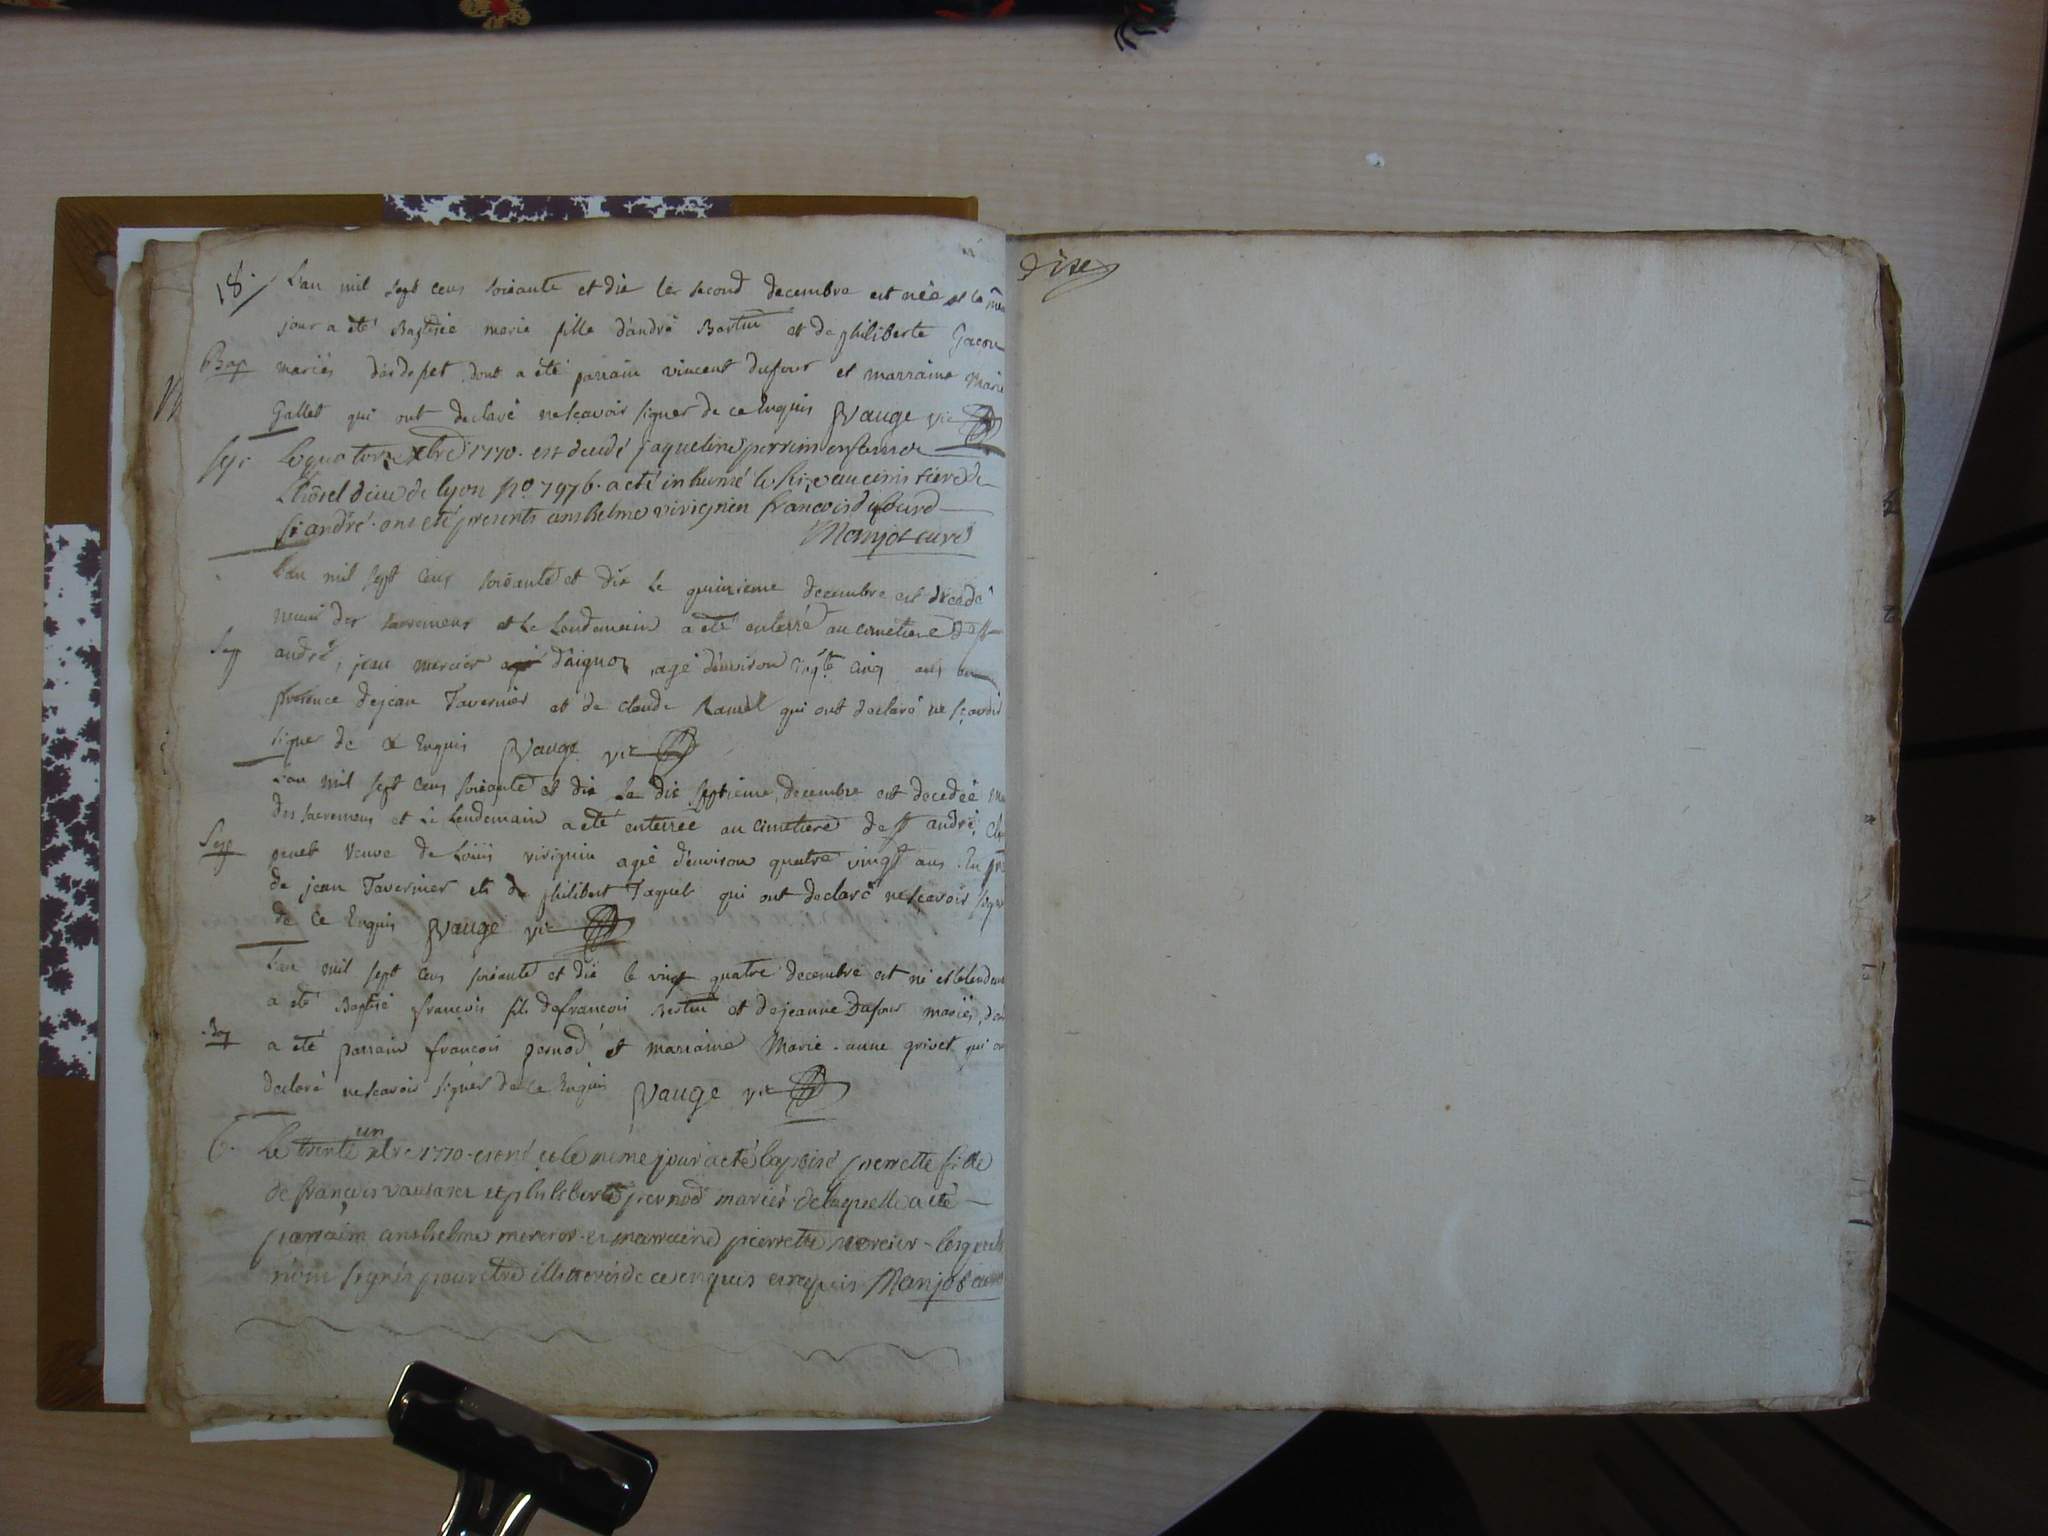 18.
L'an mil sept cens soixante et dix le second decembre est née et le mê
jour a été Baptisée marie fille d'andré Bertin et de philiberte Gacon
Bap mariés dont a été parrain vincent dufour et marraine Marie
Gallet qui ont declaré ne scavoir signer de ce Enquis Vauge vic
sep. Le quatorze xbre 1770. est decedé jaqueline perrin enfant de
L'hôtel dieu de lyon No 7976. a été inhumé le au cimetiere de
st andré. ont eté presents anthelme virignin francois dufour
Monjot curé
L'an mil sept cens soixante et dix le quinzieme decembre est decedé
muni des sacremens et le Lendemain a été enterré au cimetiere de st
Sep andré, jean mercier d'aignoz agé d'environ cinqte cinq ans en
presence de jean Tavernier et de claude Ramel qui ont declaré ne sçavoir
signer de ce Enquis Vauge vic
L'an mil sept cens soixante et dix Le dix septieme decembre est decedée mu
des sacremens et le Lendemain a été enterrée au cimetiere de st andré, cl
Sep penet Veuve de Loüis virignin agée d'environ quatre vingt ans. En pré
de jean Tavernier et de philibert Jaquet qui ont declaré ne scavoir sign
de ce Enquis Vauge vic
L'an mil sept cens soixante et dix le vingt quatre decembre est né et le lendem
a été Baptisé françois fils de francois Bertin et de jeanne Dufour mariés, don
Bap a été parrain francois pernod et marraine Marie-anne grivet qui on
declaré ne scavoir signer de ce Enquis Vauge vic
b. Le trente un xbre 1770. est né et le meme jour a eté baptisé pierrette fille
de françois et philiberte pernod mariés. de laquelle a eté
parrain anthelme mercier et marraine pierrette mercier - lesquels
n'ont signés pour être illiterés de ce enquis et requis Monjot curé
dixe